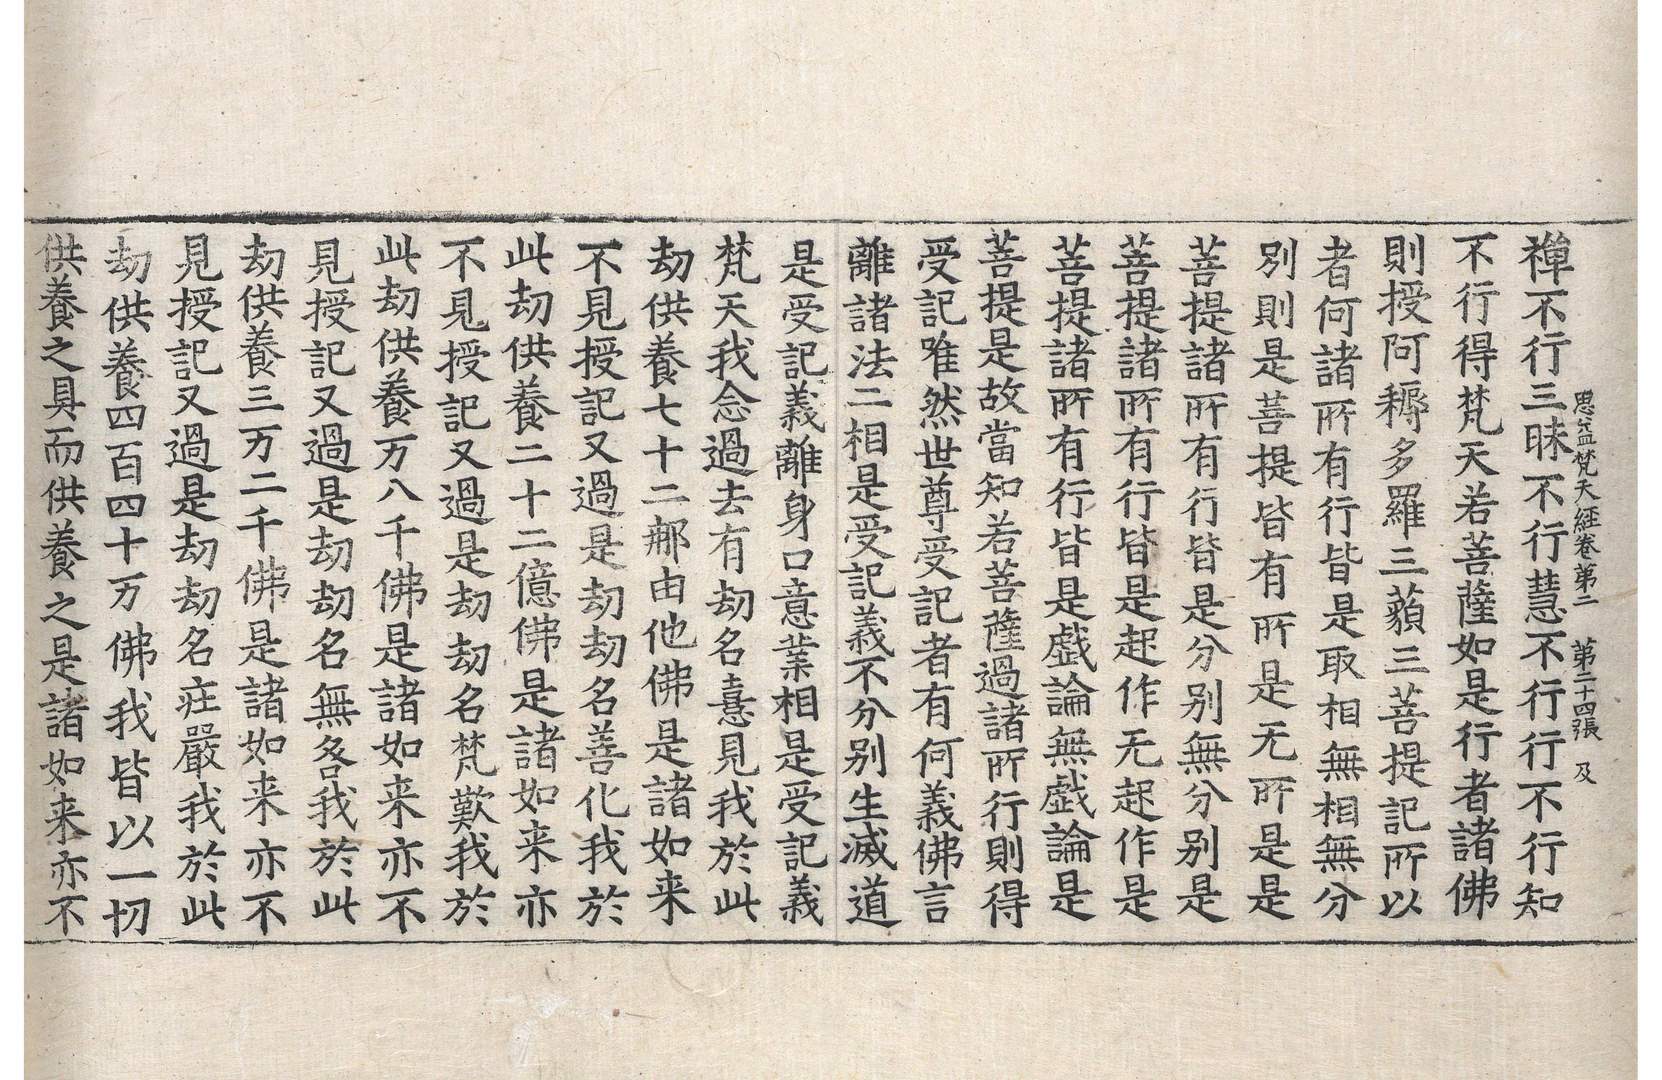 思益梵天經卷第二 第二十四張 及
禅不行三昧不行慧不行行不行知
不行得梵天若菩薩如是行者諸佛
則授阿耨多羅三藐三菩提記所以
者何諸所有行皆是取相無相無分
别則是菩提皆有所是无所是是
菩提諸所有行皆是分别無分别是
菩提諸所有行皆是起作无起作是
菩提諸所有行皆是戲論無戲論是
菩提是故當知若菩薩過諸所行則得
受記唯然世尊受記者有何義佛言
離諸法二相是受記義不分别生滅道
是受記義離身口意業相是受記義
梵天我念過去有劫名憙見我於此
劫供養七十二那由他佛是諸如来
不見授記又過是劫劫名善化我於
此劫供養二十二億佛是諸如来亦
不見授記又過是劫劫名梵歎我於
此劫供養万八千佛是諸如来亦不
見授記又過是劫劫名無咎我於此
劫供養三万二千佛是諸如来亦不
見授記又過是劫劫名莊嚴我於此
劫供養四百四十万佛我皆以一切
供養之具而供養之是諸如来亦不